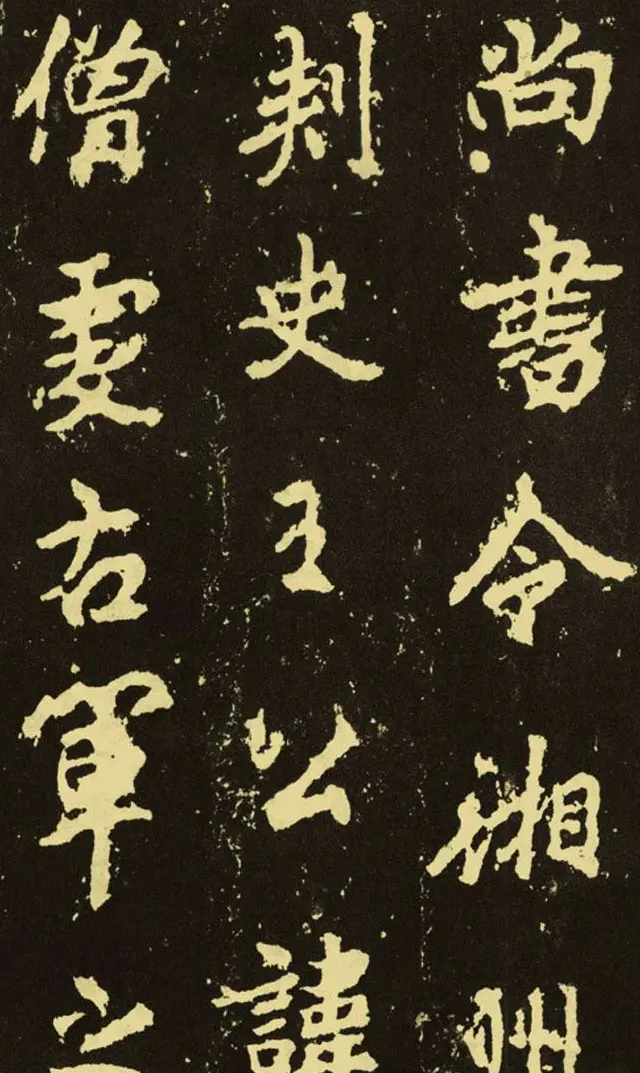 尚書令湘州
刺史王公諱
僧虔右軍之